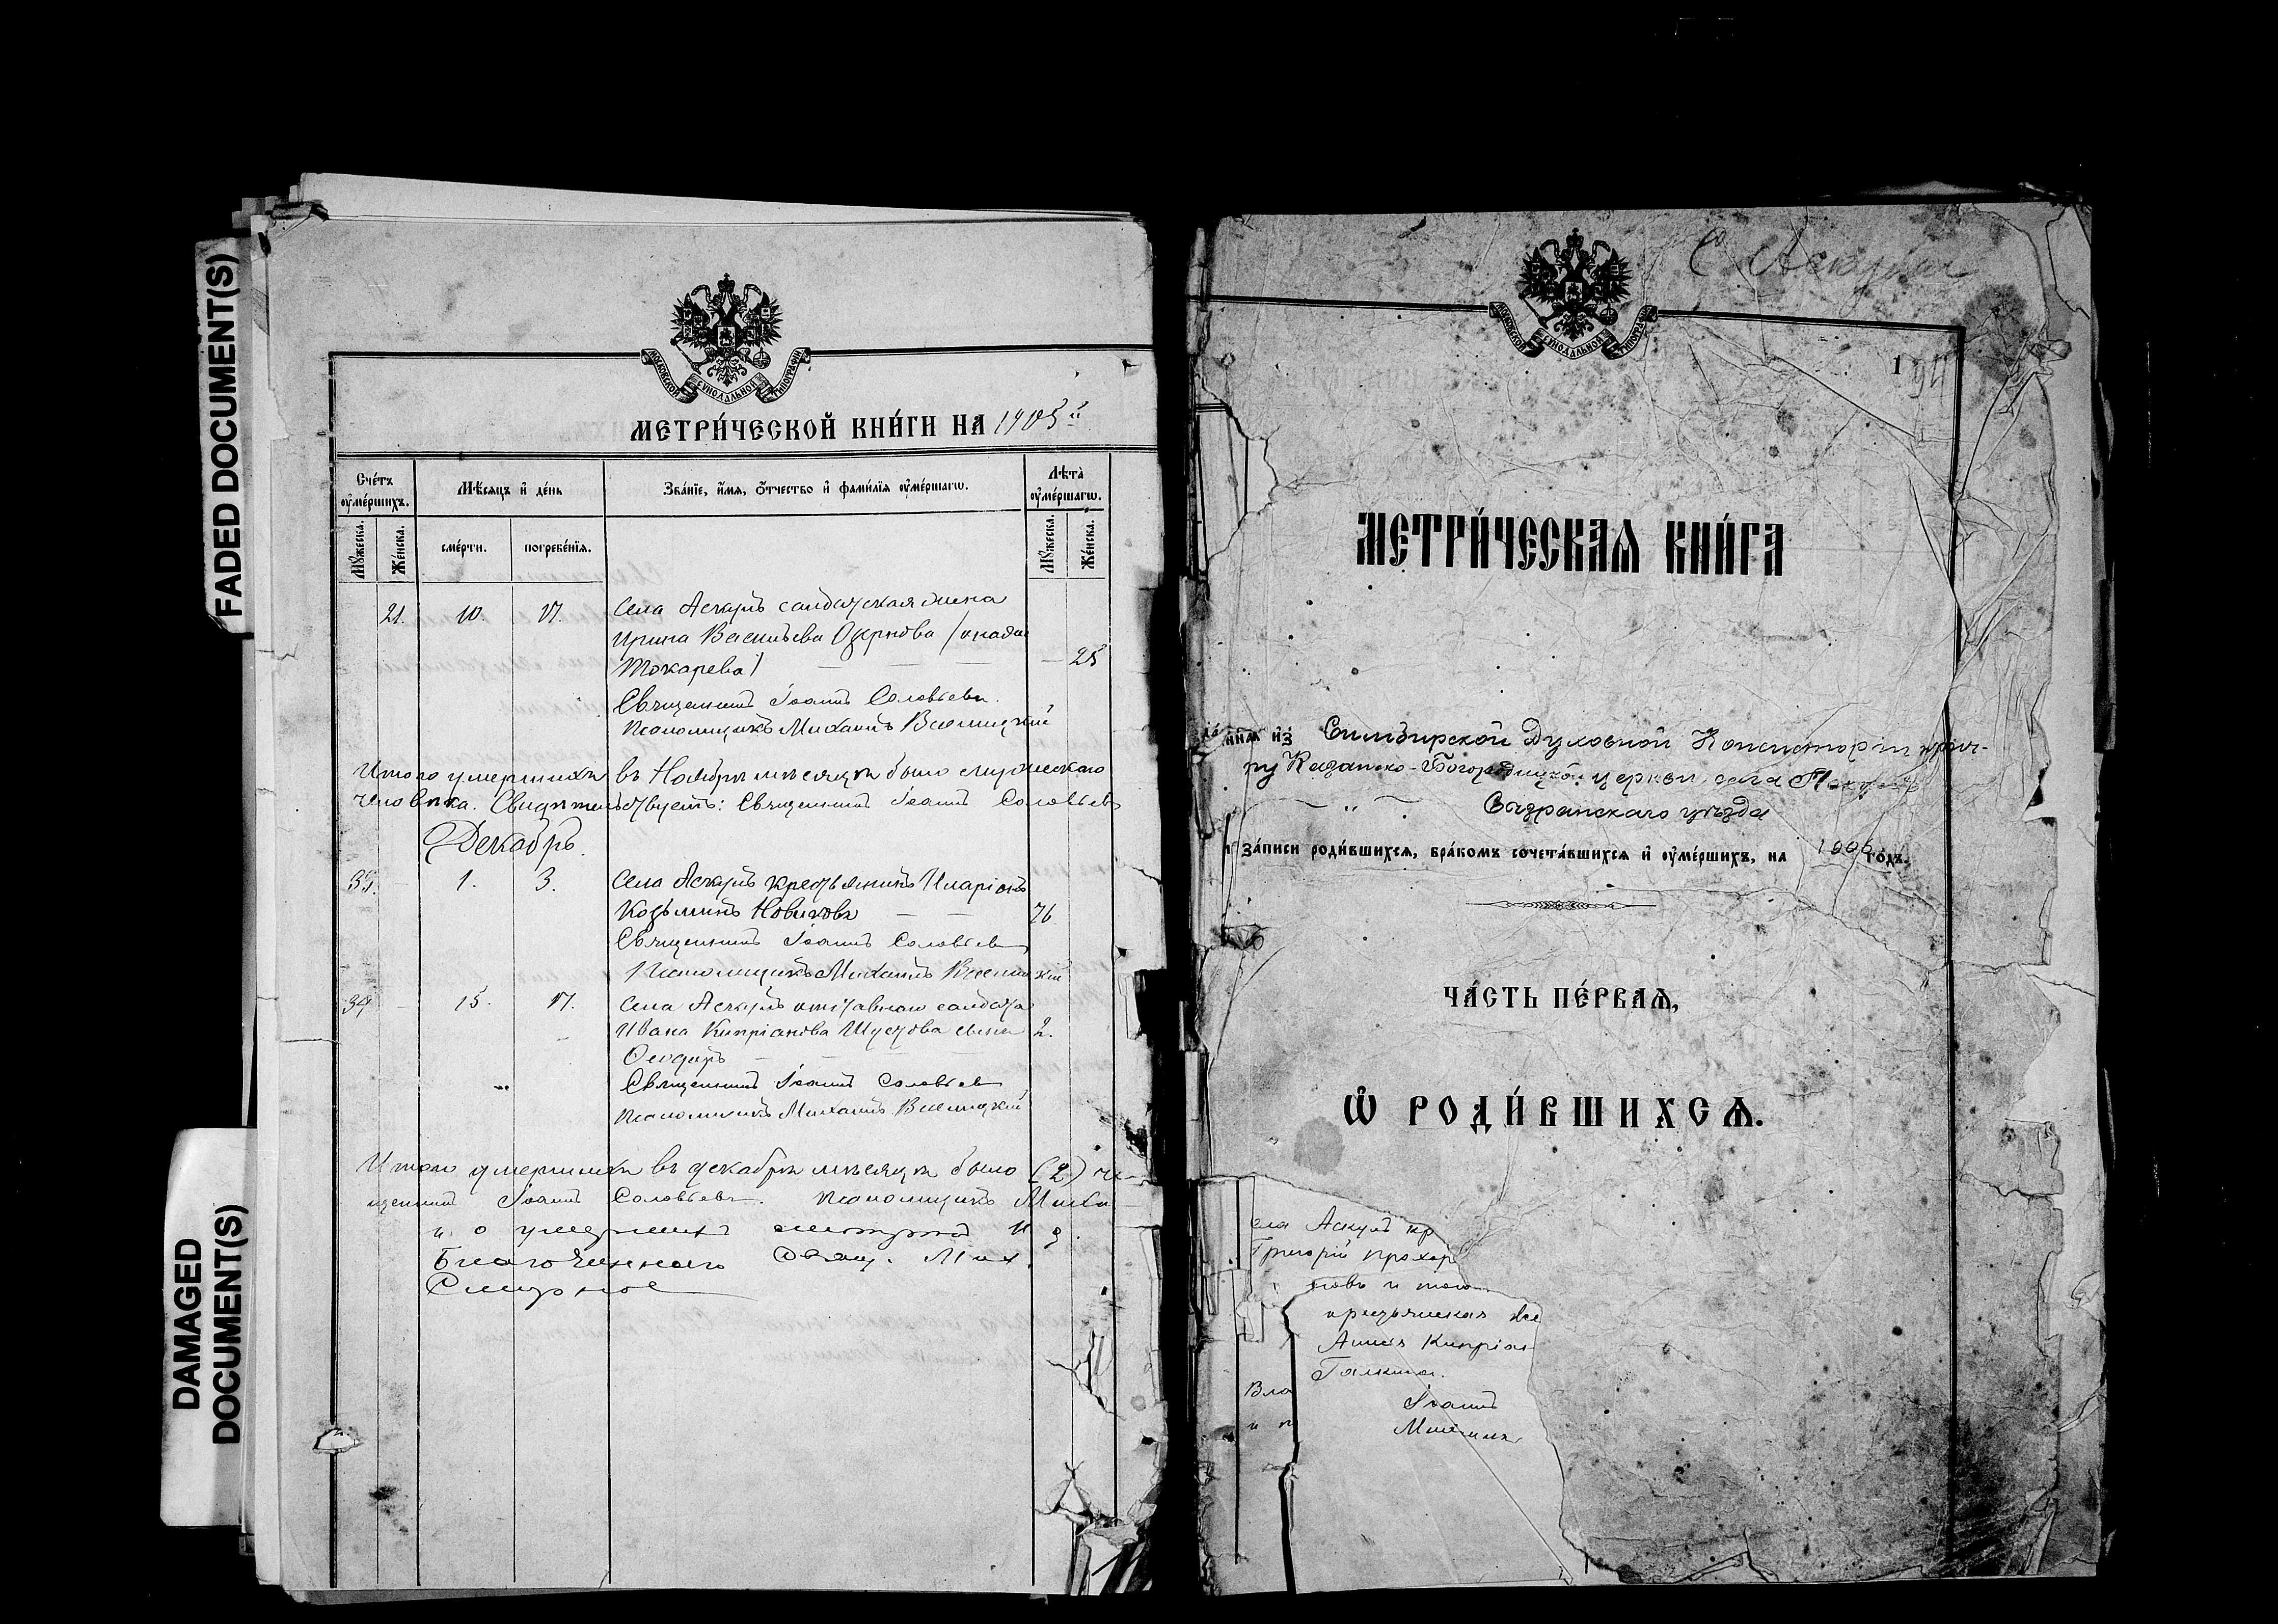 FADED DOCUMENT(S)
DAMAGED
DOCUMENT(S)
МОСКОВСКОЙ СѴНОДАЛЬНОЙ ТИПОГРАФІИ
МЕТРИ́ЧЕСКОЙ КНИ́ГИ НА 1905 й
Сче́тъ
ѹ҆ме́ршихъ.
Мѣ́сяцъ и҆ де́нь
Зва́нїе, и҆́мя, ѻ҆́тчество и҆ фами́лїя ѹ҆ме́ршагѡ.
Лѣта̀
ѹ҆ме́ршагѡ.
Мꙋ́жеска.
Же́нска.
сме́рти.
погребе́нїя.
Мꙋ́жеска.
Же́нска.
21. 10. 17. Села Аскулъ солдатская жена
Ирина Васильева
Токарева) 25
Священникъ Іоаннъ Соловьевъ.
Псаломщикъ Михаилъ
Итого умершихъ въ Ноябрѣ мѣсяцѣ было мужескаго
человѣка. Свидѣтельствуетъ: Священникъ Іоаннъ Соловьевъ
Декабрь.
33. 1. 3. Села Аскулъ крестьянинъ Иларіонъ
Козьминъ Новиковъ 76
Священникъ Іоаннъ Соловьевъ
Псаломщикъ Михаилъ
34 15. 17. Села Аскулъ отставного солдата
Ивана Кипріанова Шустова сынъ 2.
Ѳеодоръ
Священникъ Іоаннъ Соловьевъ
Псаломщикъ Михаилъ
Итого умершихъ въ декабрѣ мѣсяцѣ было (2) че-
щенникъ Іоаннъ Соловьевъ. Псаломщикъ Миха
и о умершихъ смотрѣлъ И. д.
Благочиннаго Свящ. Мих.
Смирнов
С. Аскулы
МОСКОВСКОЙ СѴНОДАЛЬНОЙ ТИПОГРАФІИ
1
94
МЕТРИ́ЧЕСКАѦ КНИ́ГА
да́ннаѧ и҆з̾ Симбирской Духовной Консисторіи прич-
ту Казанско-Богородицкой церкви села Аскулъ
Сызранскаго уѣзда
за́писи роди́вшихсѧ, бра́комъ сочета́вшихсѧ и҆ ѹ҆ме́ршихъ, на 1906 го́дъ.
ЧА́СТЬ ПЕ́РВАѦ,
Ѡ҆ РОДИ́ВШИХСѦ.
ела Аскулъ кр
Григорій Прохор
новъ и
крестьянская
Анна Кипріан
Галкина.
Вла
Іоаннъ
и п